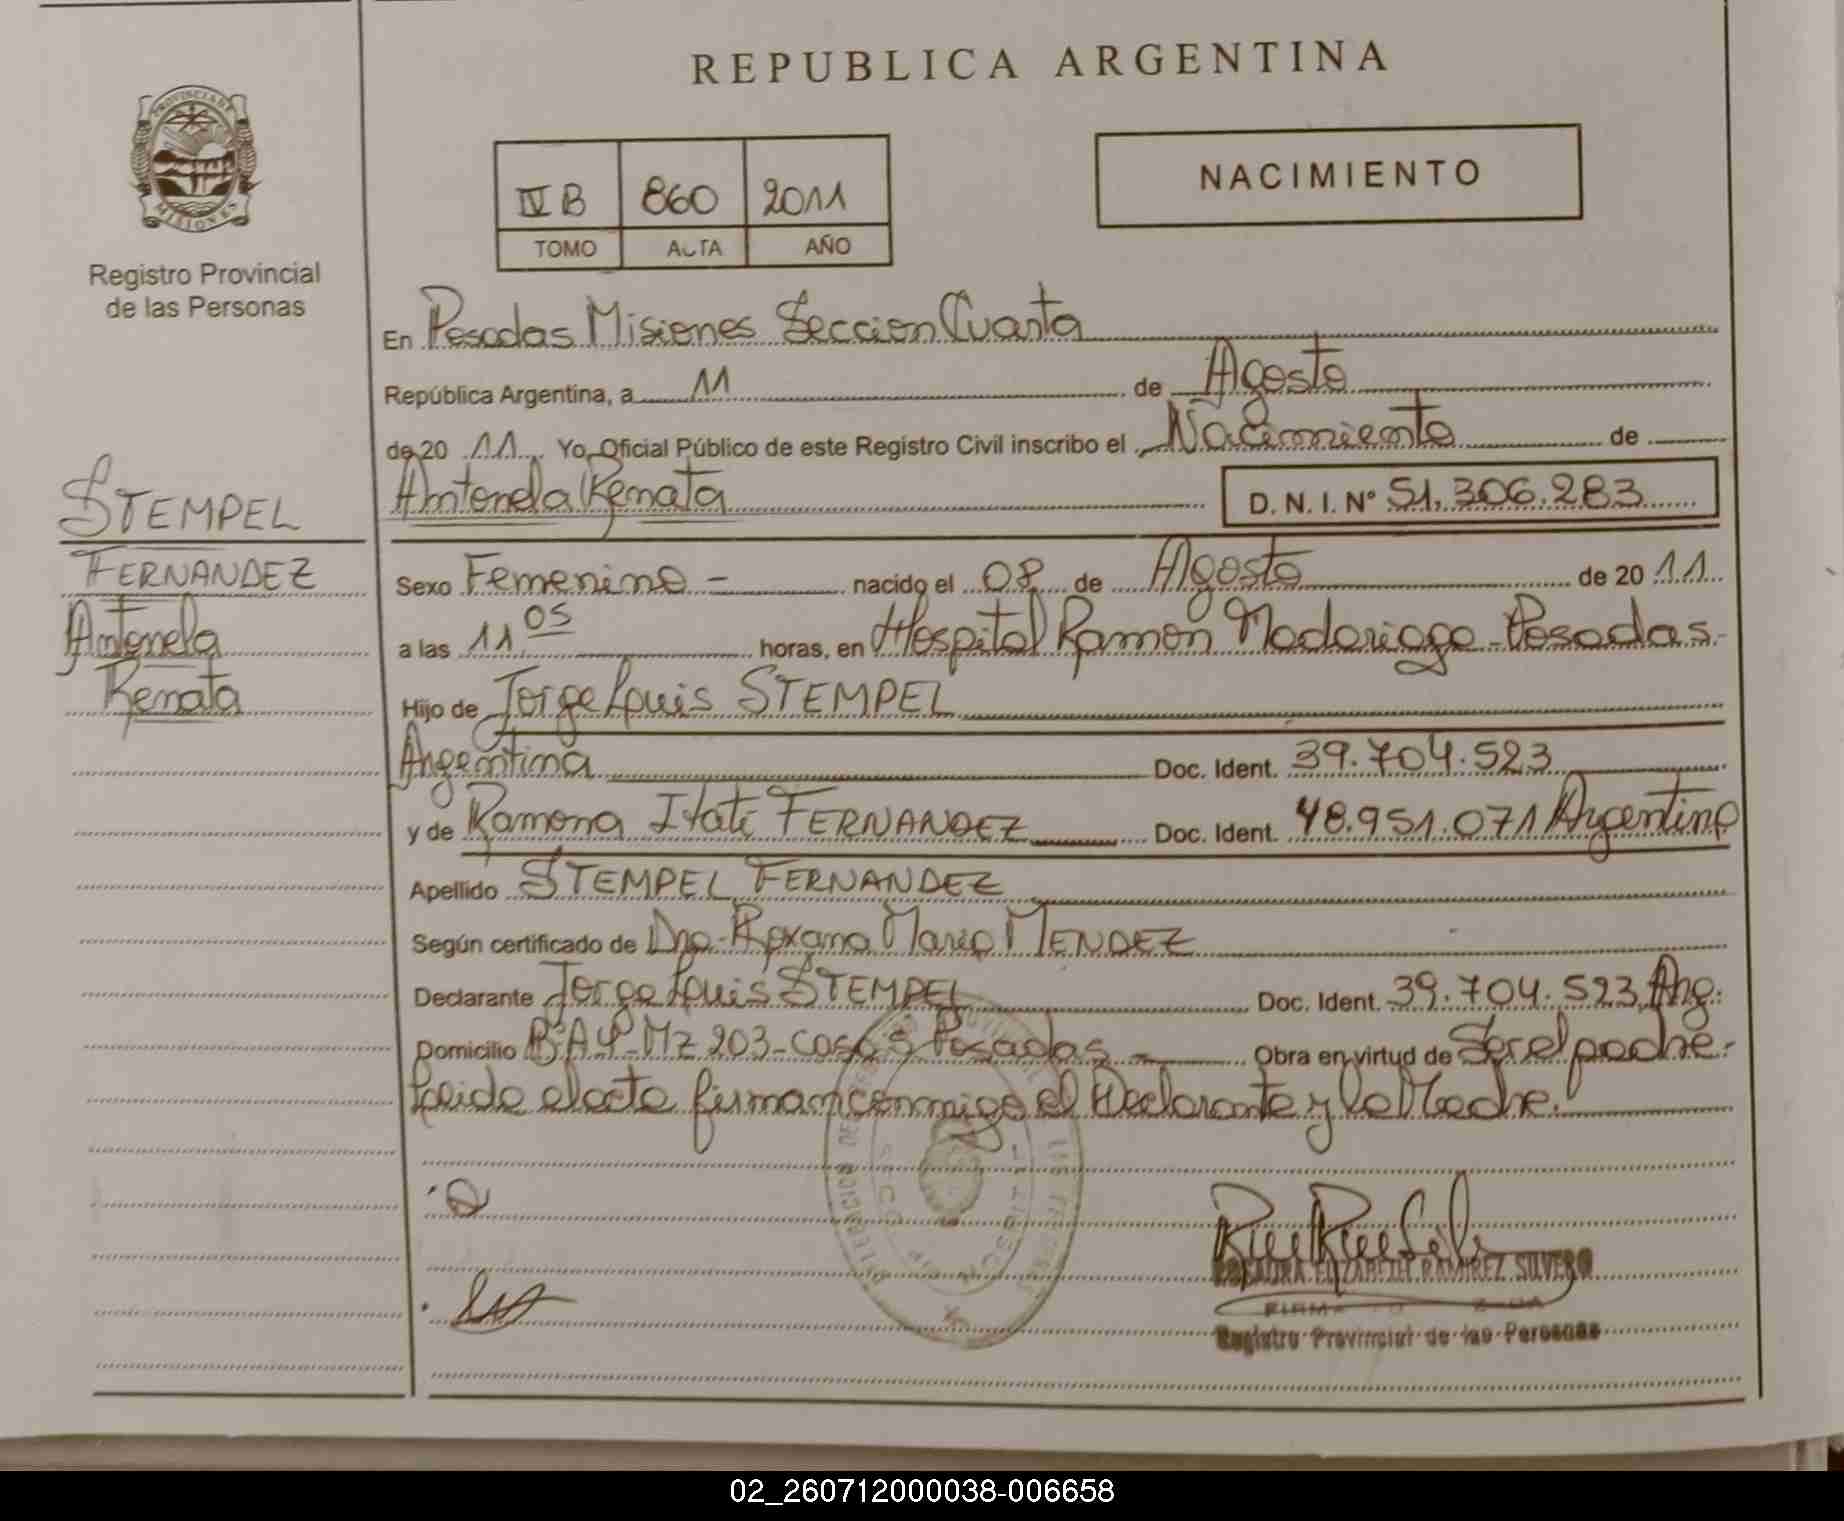 REPUBLICA ARGENTINA
PROVINCIA DE
MISIONES
Registro Provincial
de las Personas
IV B 860 2011
TOMO ACTA AÑO
NACIMIENTO
En Posadas Misiones Seccion Cuarta
República Argentina, a 11 de Agosto
de 20 11 Yo, Oficial Público de este Registro Civil inscribo el Nacimiento de
Antonela Renata D. N. I. N° 51.306.283
STEMPEL
FERNANDEZ
Antonela
Renata
Sexo Femenino - nacido el 08 de Agosto de 20 11
a las 11 05 horas, en Hospital Ramon Madariaga - Posadas.
Hijo de Jorge Luis STEMPEL
Argentina Doc. Ident. 39.704.523
y de Ramona Itati FERNANDEZ Doc. Ident. 48.951.071 Argentina
Apellido STEMPEL FERNANDEZ
Según certificado de Dra. Roxana Maria MENDEZ
Declarante Jorge Luis STEMPEL Doc. Ident. 39.704.523, Arg.
Domicilio Mz 203 - casa 5 Posadas - Obra en virtud de Ser el padre.
Leida el acta firman conmigo el Declarante y la Madre.
ROSAURA ELIZABETH RAMIREZ SILVERO
FIRMA
Registro Provincial de las Personas
02_260712000038-006658